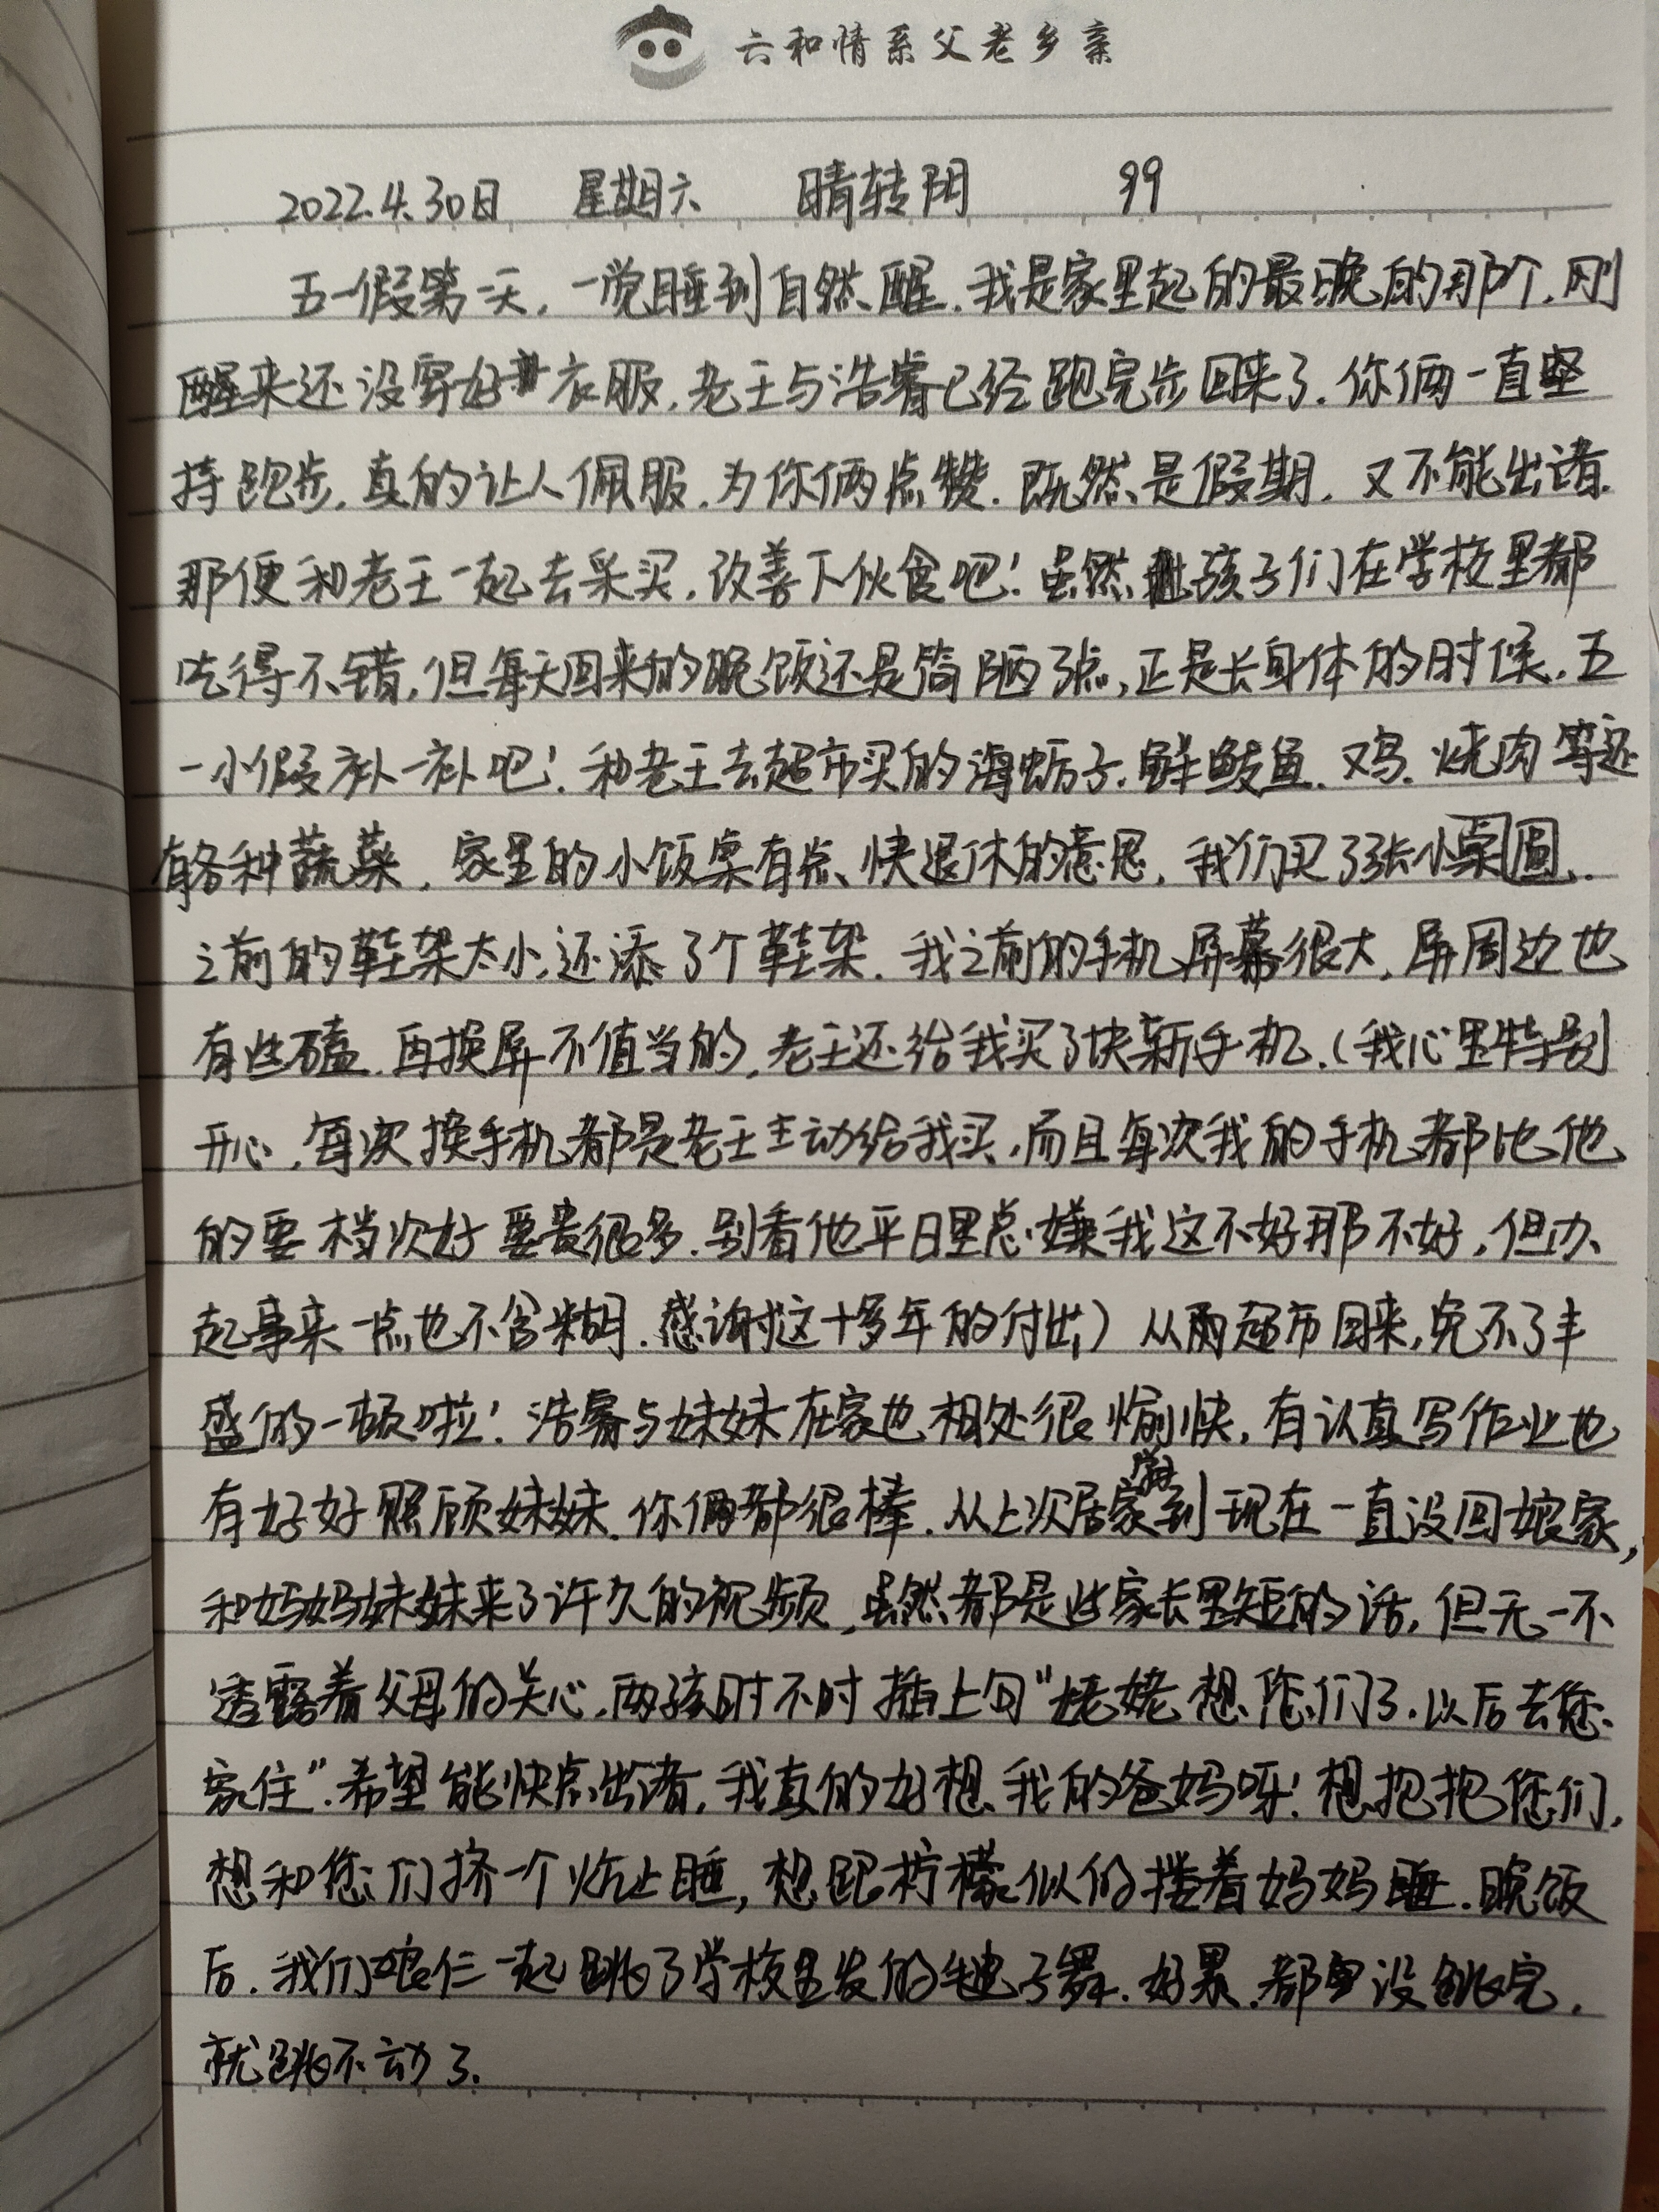 六和情系父老乡亲
2022.4.30日 星期六 晴转阴 99
五一假第一天,一觉睡到自然醒.我是家里起的最晚的那个.刚
醒来还没穿好衣服,老王与浩睿已经跑完步回来了.你俩一直坚
持跑步,真的让人佩服.为你俩点赞.既然是假期,又不能出诸.
那便和老王一起去采买,改善下伙食吧!虽然孩子们在学校里都
吃得不错,但每天回来的晚饭还是简陋了点,正是长身体的时候,五
一小假补一补吧!和老王去超市买的海蛎子.鲜鲅鱼.又鸟.烧肉等还
有各种蔬菜,家里的小饭桌有点快退休的意思,我们买了张小桌圆.
之前的鞋架太小,还添了个鞋架.我之前的手机屏幕很大,屏周边也
有些磕.再换屏不值当的,老王还给我买了块新手机.(我心里特别
开心,每次换手机都是老王主动给我买,而且每次我的手机都比他
的要档次好要贵很多.别看他平日里总嫌我这不好那不好,但办
起事来一点也不含糊.感谢这十多年的付出)从两超市回来,免不了丰
盛的一顿啦!浩睿与妹妹在家也相处很愉快,有认真写作业也
有好好照顾妹妹.你俩都很棒.从上次居家到现在一直没回娘家,
和妈妈妹妹来了许久的视频,虽然都是些家长里短的话,但无一不
透露着父母的关心.两孩时不时插上句"姥姥想您们了.以后去您
家住".希望能快点出诸,我真的好想我的爸妈呀!想抱抱您们,
想和您们挤一个炕上睡,想跟柠檬似的搂着妈妈睡.晚饭
后.我们娘仨一起跳了学校里发的毽子舞.好累.都没跳完,
就跳不动了.